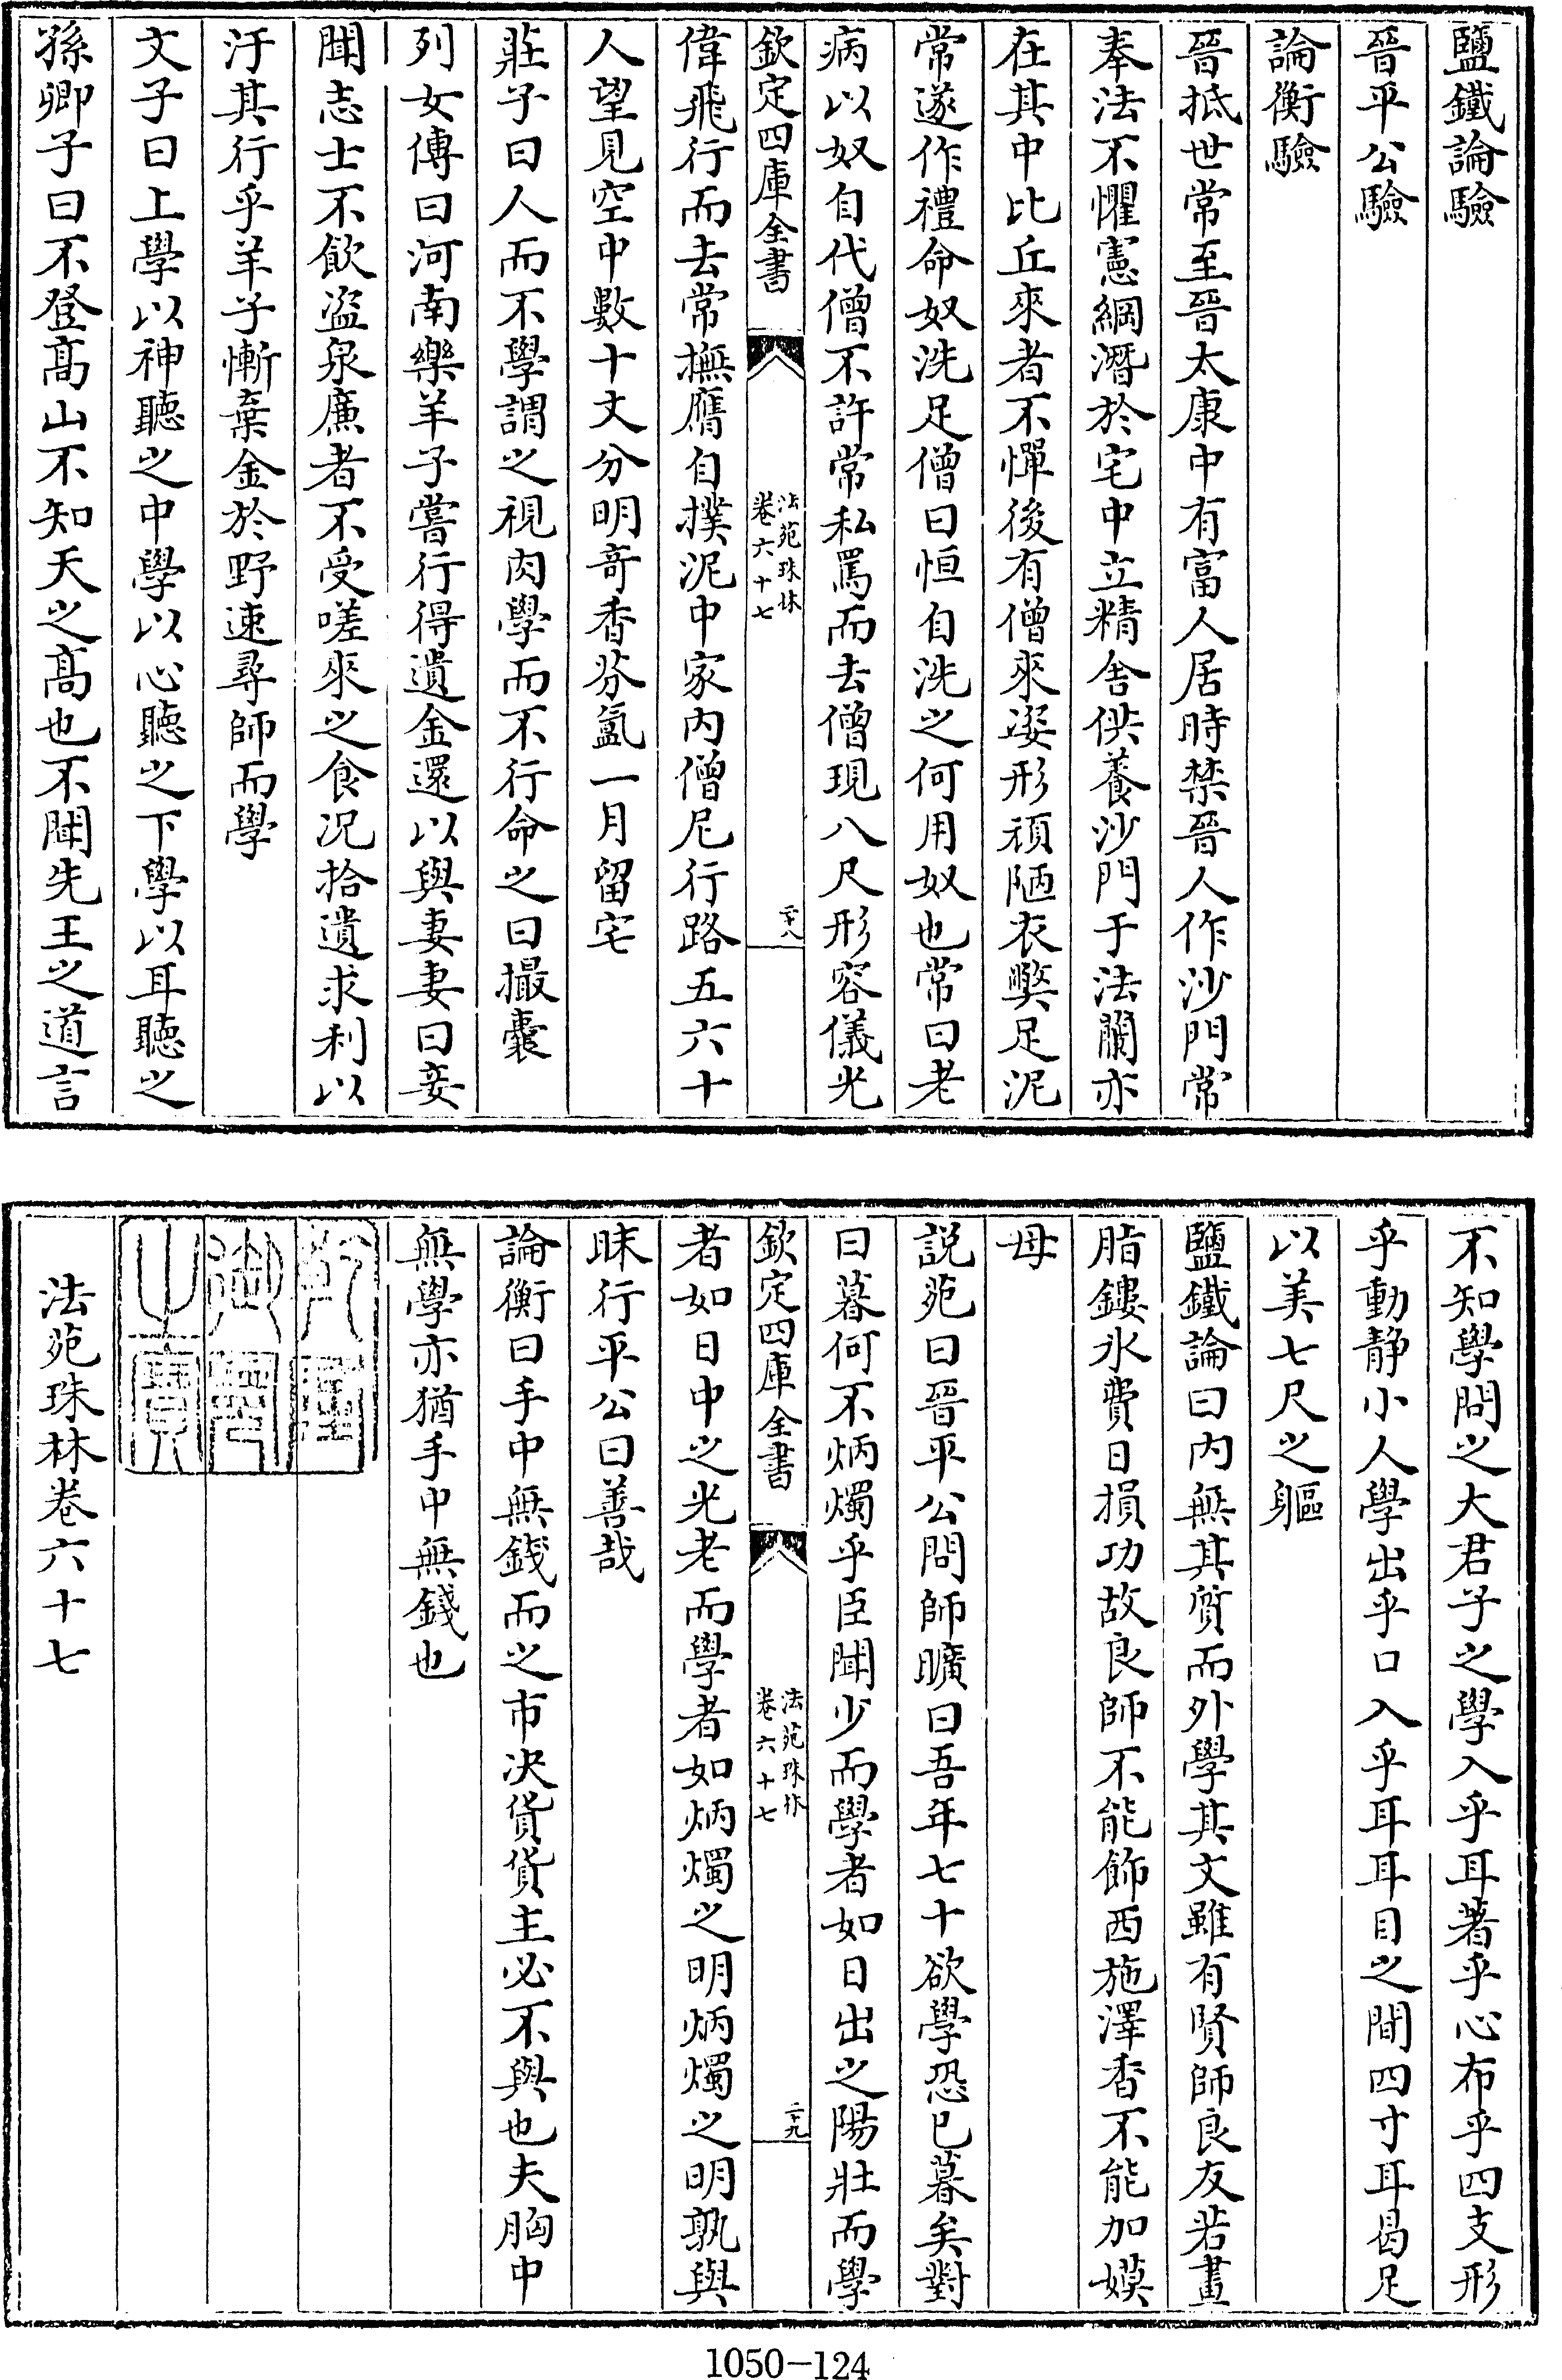 鹽鐵論驗
晉平公驗
論衡驗
晉抵世常至晉太康中有富人居時禁晉人作沙門常
奉法不懼憲綱潛於宅中立精舍供養沙門于法蘭亦
在其中比丘來者不憚後有僧來姿形頑陋衣弊足泥
常遂作禮命奴洗足僧曰恒自洗之何用奴也常曰老
病以奴自代僧不許常私罵而去僧現八尺形容儀光
欽定四庫全書
法苑珠林
卷六十七
二十八
偉飛行而去常撫膺自撲泥中家内僧尼行路五六十
人望見空中數十丈分明竒香芬氳一月留宅
莊子曰人而不學謂之視肉學而不行命之曰撮囊
列女傳曰河南樂羊子嘗行得遺金還以與妻妻曰妾
聞志士不飲盗泉廉者不受嗟來之食况拾遺求利以
汙其行乎羊子慚棄金於野速尋師而學
文子曰上學以神聽之中學以心聽之下學以耳聽之
孫卿子曰不登髙山不知天之髙也不聞先王之道言
不知學問之大君子之學入乎耳著乎心布乎四支形
乎動静小人學出乎口入乎耳耳目之間四寸耳曷足
以美七尺之軀
鹽鐵論曰内無其質而外學其文雖有賢師良友若畫
脂鏤氷費日損功故良師不能飾西施澤香不能加嫫
母
説苑曰晉平公問師曠曰吾年七十欲學恐已暮矣對
曰暮何不炳燭乎臣聞少而學者如日出之陽壯而學
欽定四庫全書
法苑珠林
卷六十七
二十九
者如日中之光老而學者如炳燭之明炳燭之明孰與
昧行平公曰善哉
論衡曰手中無錢而之市决貨貨主必不與也夫胸中
無學亦猶手中無錢也
乾隆
御覽
之寶
法苑珠林卷六十七
1050-124